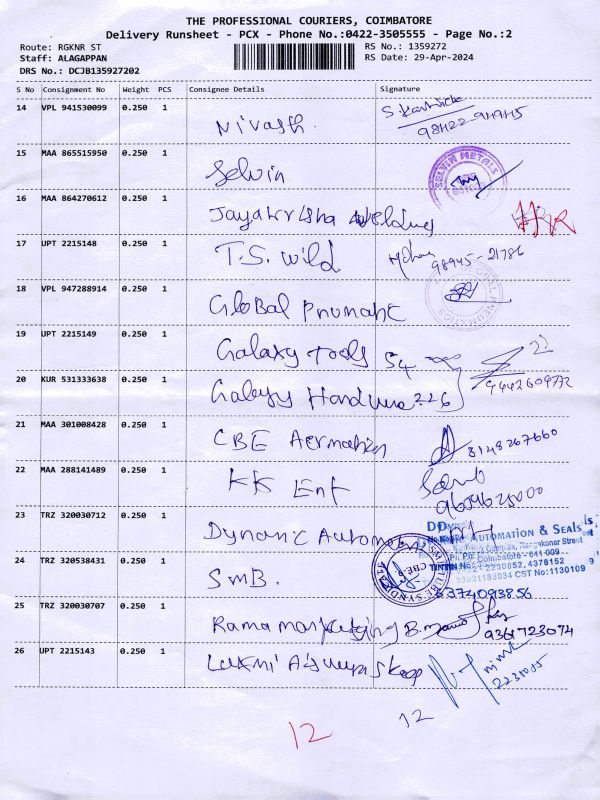 THE PROFESSIONAL COURIERS, COIMBATORE
Delivery Runsheet - PCX - Phone No.:0422-3505555 - Page No.:2
Route: RGKNR ST
Staff: ALAGAPPAN
DRS No.: DCJB135927202
RS No.: 1359272
RS Date: 29-Apr-2024
S No Consignment No Weight PCS Consignee Details Signature
14 VPL 941530099 0.250 1 Nivash.
15 MAA 865515950 0.250 1 Selvin SELVIN METALS
16 MAA 864270612 0.250 1 Jayakrisha Welding
17 UPT 2215148 0.250 1 T.S. Wild 98945-21786
18 VPL 947288914 0.250 1 Global Pnumatic
19 UPT 2215149 0.250 1 Galaxy Tools 54
20 KUR 531333638 0.250 1 Galaxy Hardware 226 9442609772
21 MAA 301008428 0.250 1 CBE Aermation 8148267660
22 MAA 288141489 0.250 1 KK Ent
23 TRZ 320030712 0.250 1 Dynamic Automation
AUTOMATION & SEALS
24 TRZ 320538431 0.250 1 SMB.
CST No:1130109
25 TRZ 320030707 0.250 1 Rama marketing 9361723074
26 UPT 2215143 0.250 1 Luxmi
12 12